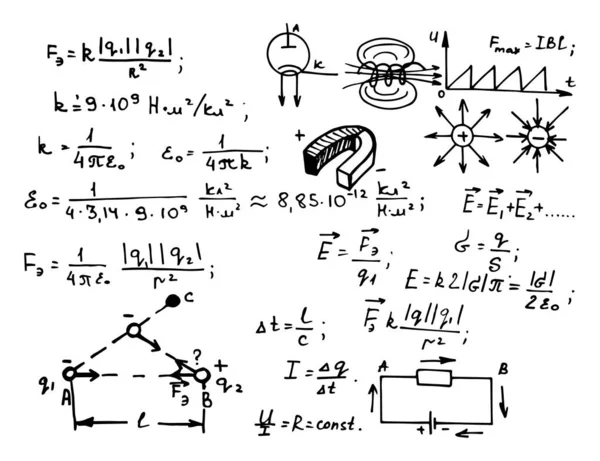 Fэ = k |q₁||q₂| / R² ;
k = 9·10⁹ Н·м²/кл² ;
k = 1 / 4πε₀ ; ε₀ = 1 / 4πk ;
ε₀ = 1 / 4·3,14·9·10⁹ кл² / Н·м² ≈ 8,85·10⁻¹² кл² / Н·м² ;
Fэ = 1 / 4πε₀ |q₁||q₂| / r² ;
A
K
U
t
0
Fmax = IBL ;
+
-
+
-
E⃗ = E⃗₁ + E⃗₂ + ......
E⃗ = F⃗э / q₁ ;
σ = q / S ;
E = k2|σ|π = |σ| / 2ε₀ ;
F⃗э k |q||q₁| / r² ;
Δt = l / c ;
I = Δq / Δt .
U / I = R = const.
C
-
-
?
+
q₁
A
F⃗э
B
q₂
l
A
B
+
-